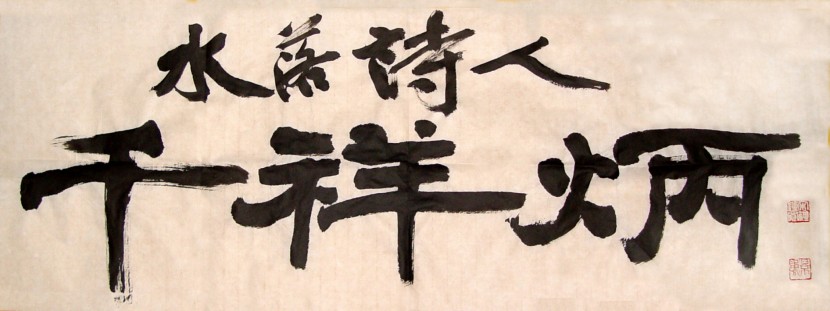 水落詩人
千祥炳